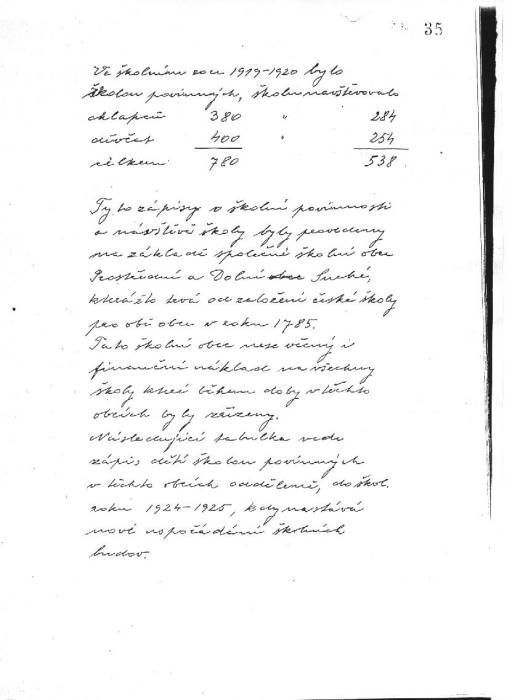 35
Ve školním roce 1919-1920 bylo
školou povinných, školu navštěvovalo
chlapců 380 " 284
děvčat 400 " 254
celkem 780 538
Tyto zápisy o školní povinnosti
a návštěvě školy byly provedeny
na základě společné školní obce
Prostřední a Dolní obce Suché,
kterážto trvá od založení české školy
pro obě obce v roku 1785.
Tato školní obec nese věcný i
finanční náklad na všechny
školy které během doby v těchto
obcích byly zřízeny.
Následující tabulka vede
zápis dětí školou povinných
v těchto obcích odděleně, do škol.
roku 1924-1925, kdy nastává
nové uspořádání školních
budov.